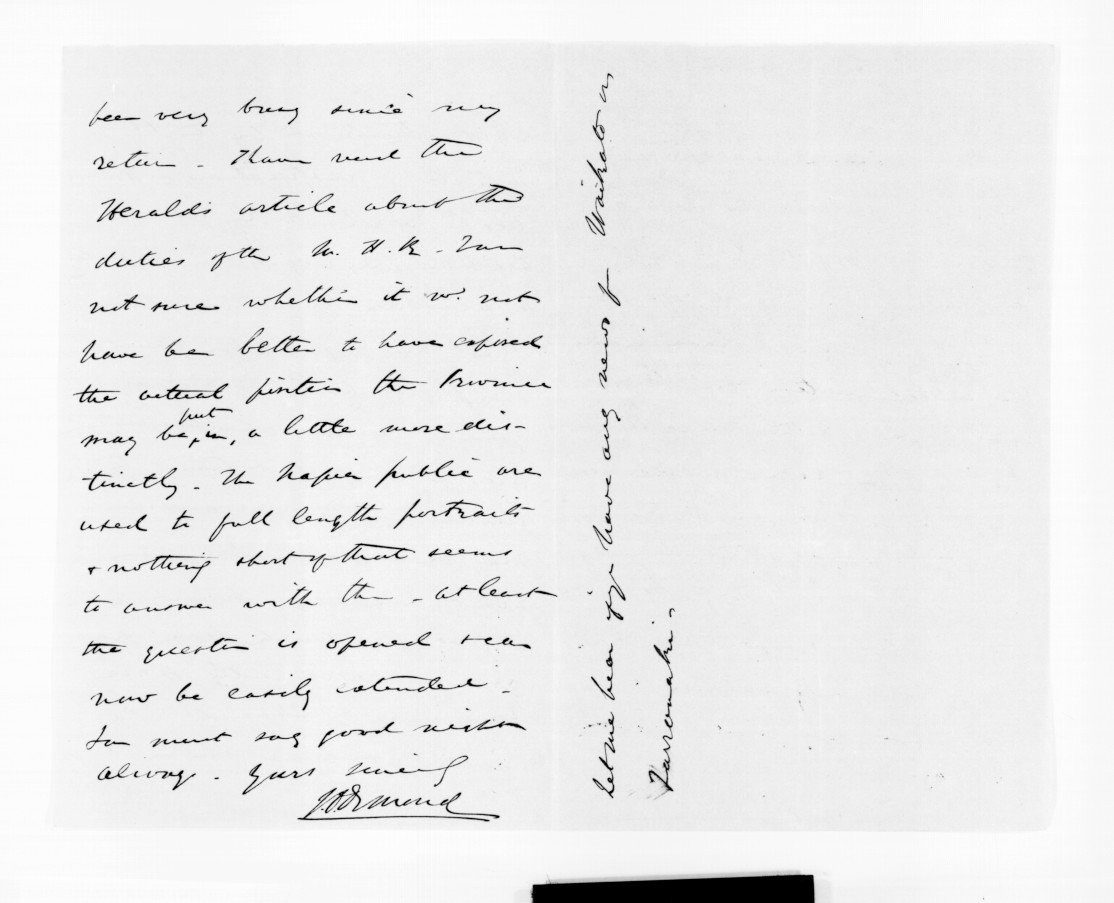 been very busy since my
return - I have read the
Heralds article about the
duties of the M. H. R. - I am
not sure whether it wd. not
have be better to have exposed
the actual position the Province
may be put in, a little more dis-
tinctly. The Napier public are
used to full length portraits
& nothing short of that seems
to answer with them - at least
the question is opened & can
now be easily extended -
I must say good night
always. Yours sincerely
J.D. Ormond
Let me hear if you have any news of Waikato or
Tarranaki -